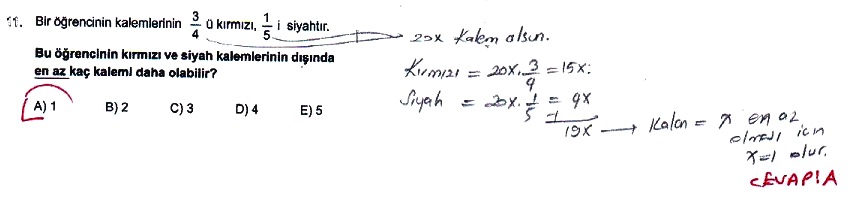 11. Bir öğrencinin kalemlerinin 3/4 ü kırmızı, 1/5 i siyahtır.
Bu öğrencinin kırmızı ve siyah kalemlerinin dışında
en az kaç kalemi daha olabilir?
A) 1 B) 2 C) 3 D) 4 E) 5
20x Kalem olsun.
Kırmızı = 20x. 3/4 = 15x
Siyah = 20x. 1/5 = 4x
19x → Kalan = x en az
olması için
x=1 olur.
CEVAP: A